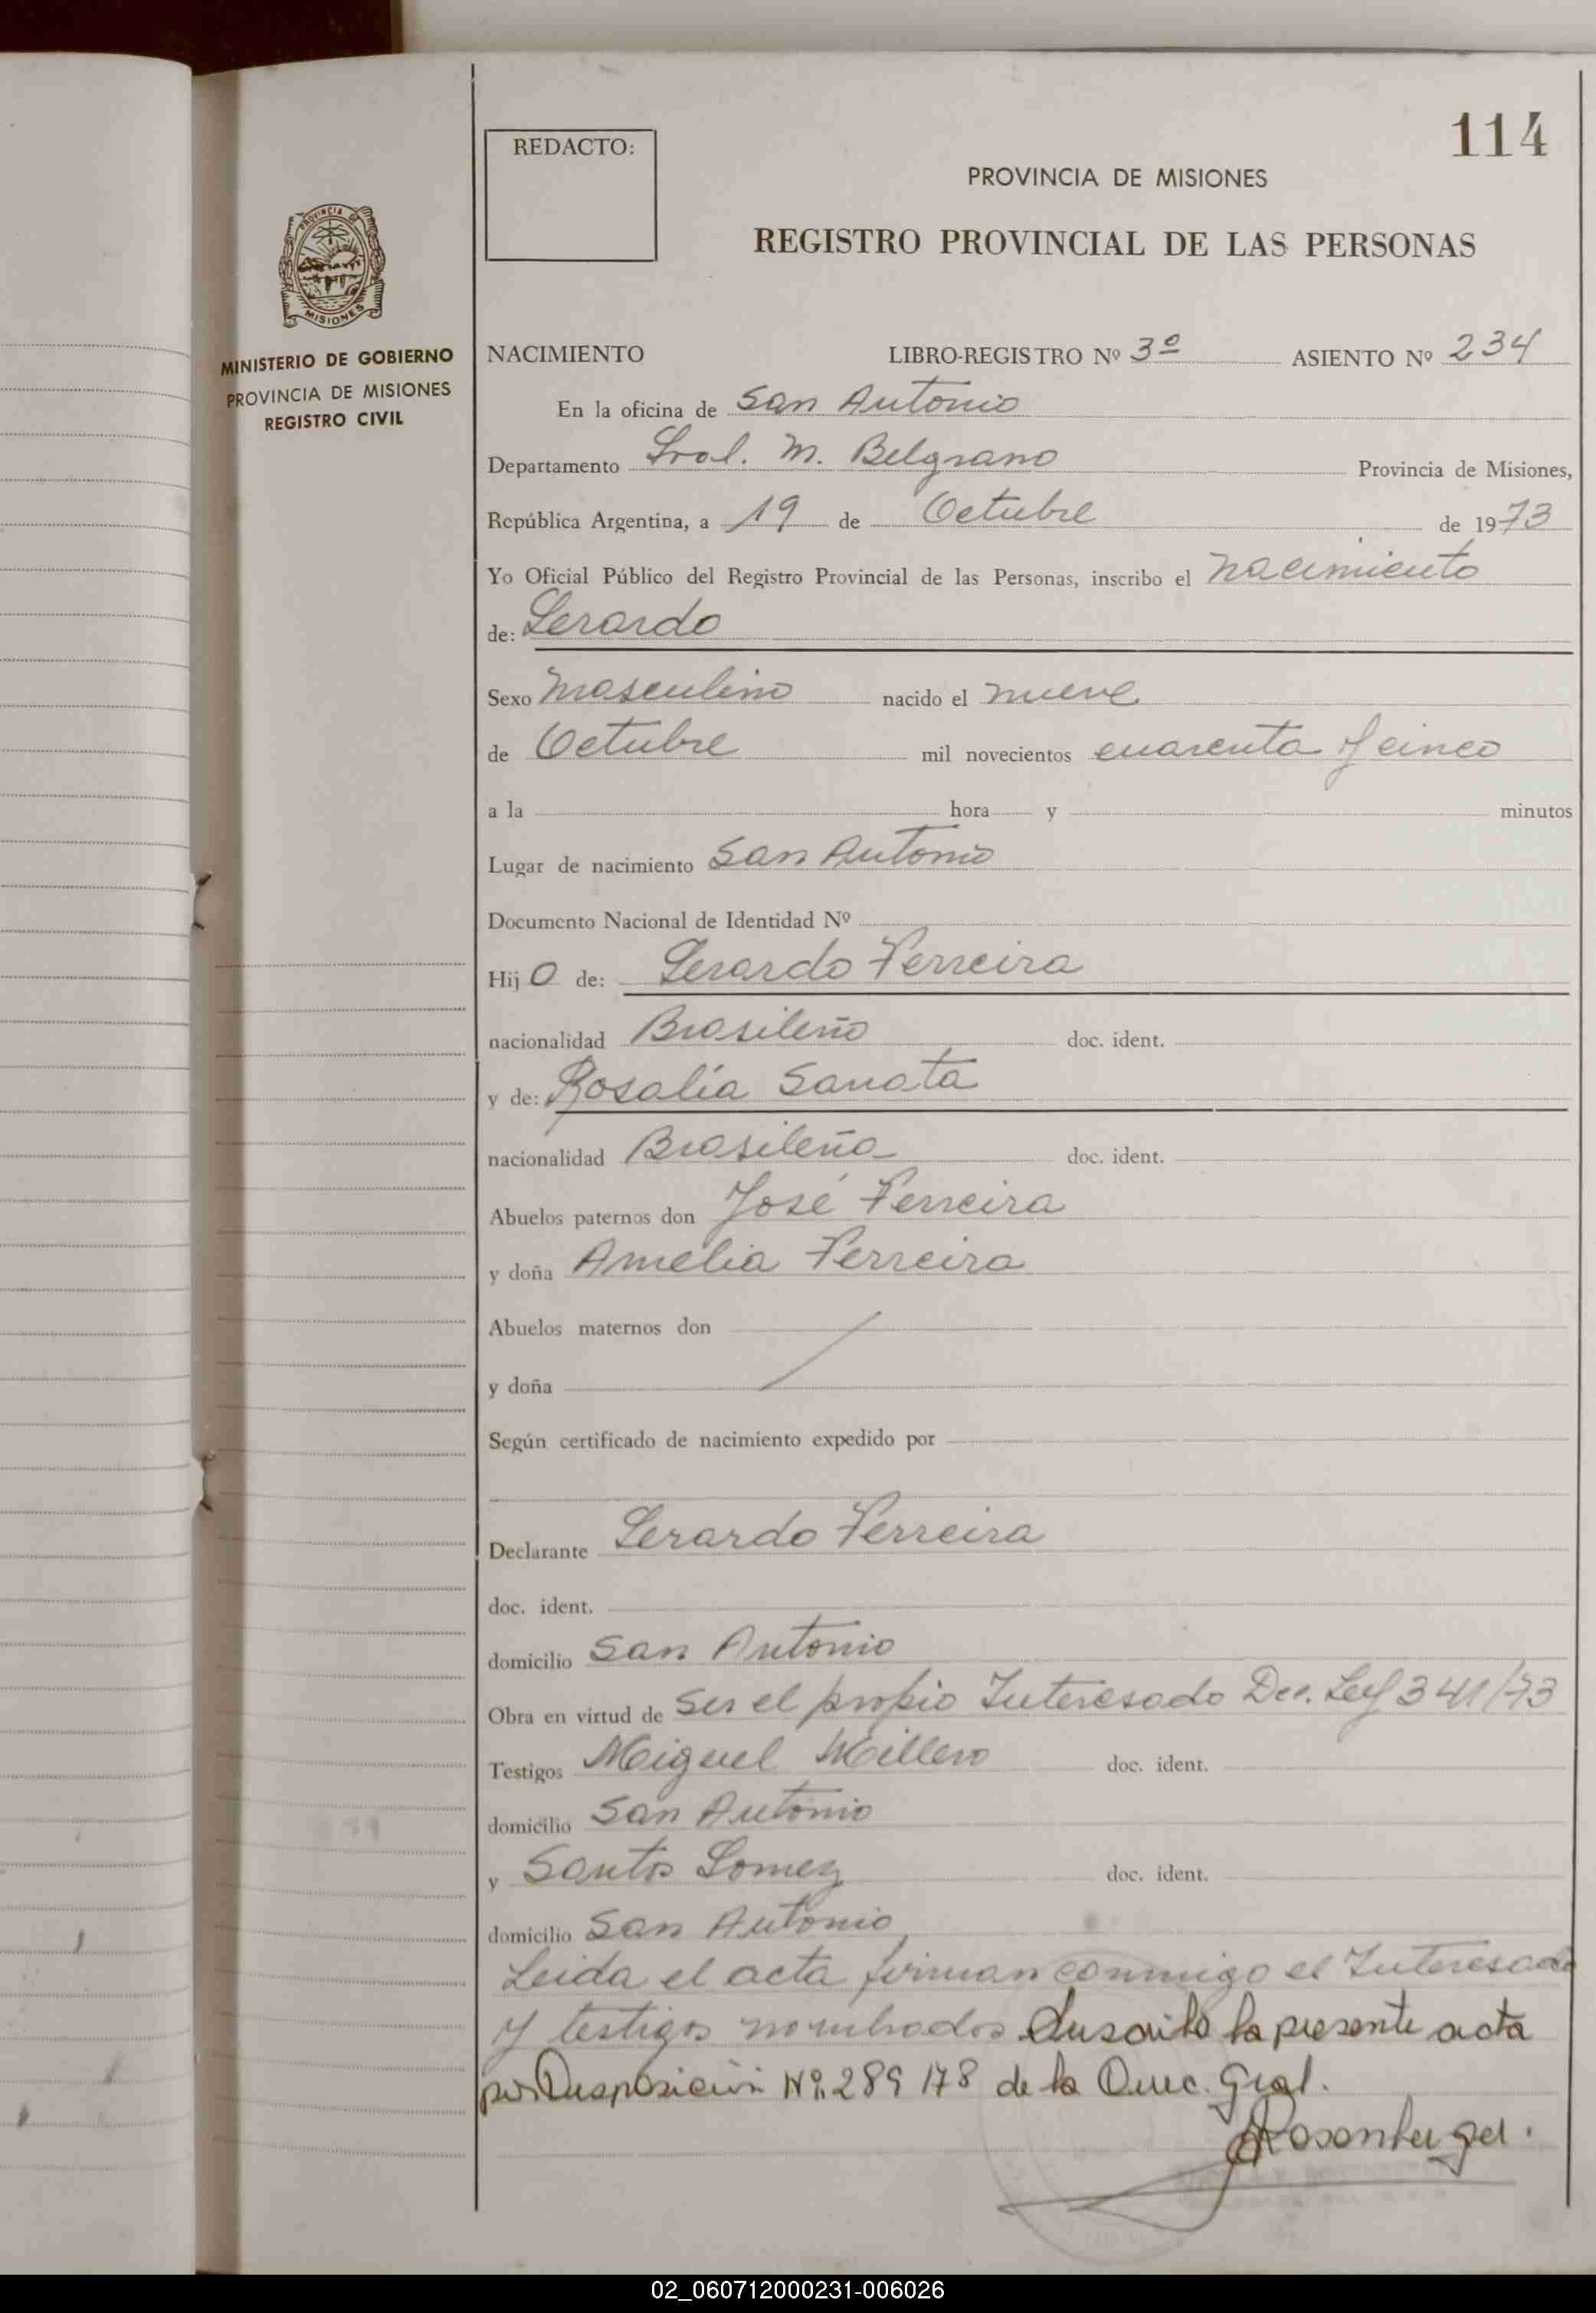 114
REDACTO:
PROVINCIA DE MISIONES
REGISTRO PROVINCIAL DE LAS PERSONAS
PROVINCIA DE
MISIONES
MINISTERIO DE GOBIERNO
PROVINCIA DE MISIONES
REGISTRO CIVIL
NACIMIENTO LIBRO-REGISTRO Nº 3º ASIENTO Nº 234
En la oficina de San Antonio
Departamento Gral. M. Belgrano Provincia de Misiones,
República Argentina, a 19 de Octubre de 1973
Yo Oficial Público del Registro Provincial de las Personas, inscribo el nacimiento
de: Gerardo
Sexo masculino nacido el nueve
de Octubre mil novecientos cuarenta y cinco
a la hora y minutos
Lugar de nacimiento San Antonio
Documento Nacional de Identidad Nº
Hijo de: Gerardo Ferreira
nacionalidad Brasileño doc. ident.
y de: Rosalía Sanota
nacionalidad Brasileña doc. ident.
Abuelos paternos don José Ferreira
y doña Amelia Ferreira
Abuelos maternos don
y doña
Según certificado de nacimiento expedido por
Declarante Gerardo Ferreira
doc. ident.
domicilio San Antonio
Obra en virtud de Ser el propio Interesado Dec. Ley 341/73
Testigos Miguel Millero doc. ident.
domicilio San Antonio
y Santos Gomez doc. ident.
domicilio San Antonio
Leida el acta firman conmigo el Interesado
y testigos nombrados Suscribo la presente acta
por Disposición Nº 289 178 de la Direc. Gral.
Rosenberger.
02_060712000231-006026